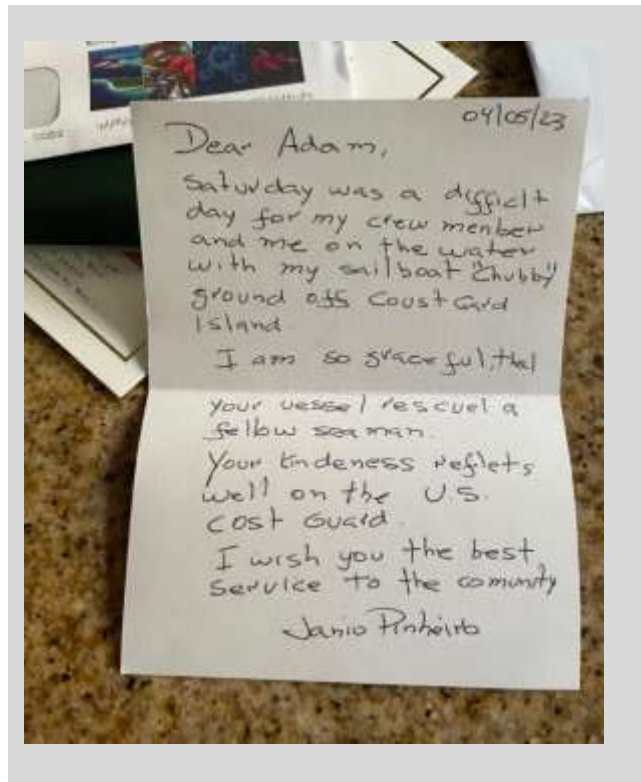 04/05/23
Dear Adam,
Saturday was a difficlt
day for my crew menber
and me on the water
with my sailboat "Chubby"
ground off Coust Gard
Island.
I am so graceful, that
your vessel rescuel a
fellow seaman.
Your kindeness reflets
well on the U.S.
Cost Guard.
I wish you the best
service to the comunity
Janio Pinheiro